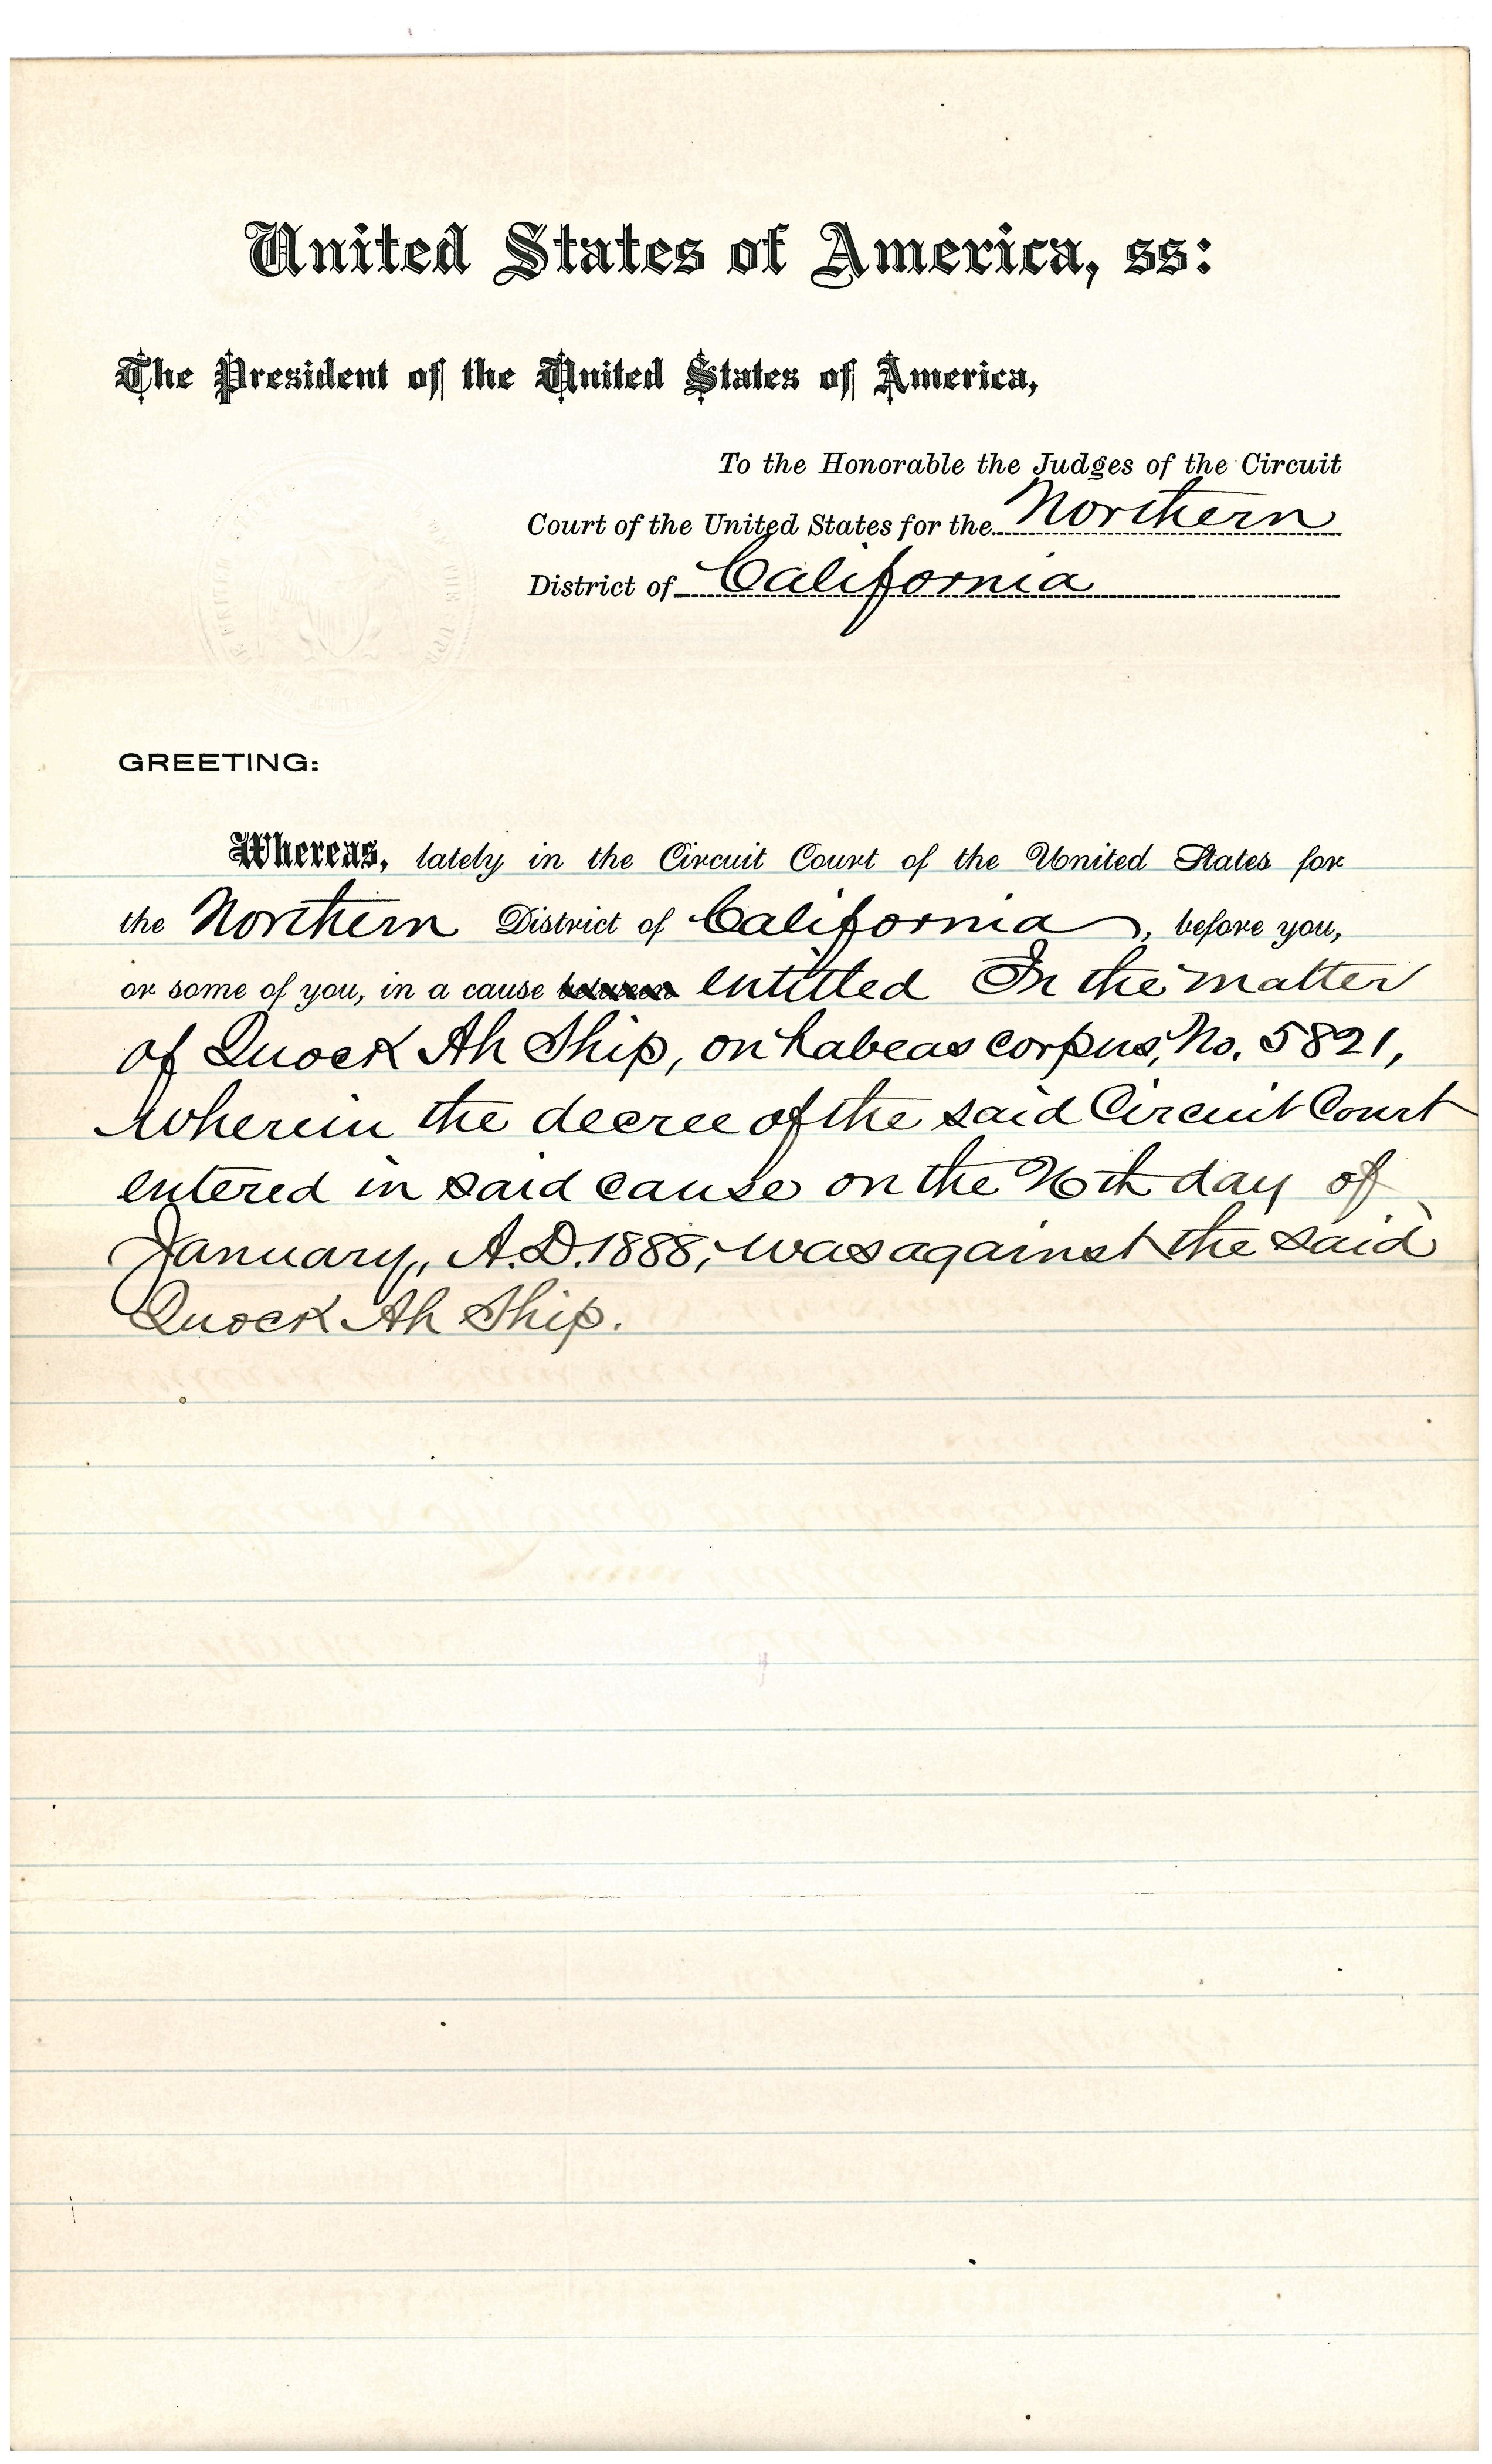 United States of America, ss:
The President of the United States of America,
To the Honorable the Judges of the Circuit
Court of the United States for the Northern
District of California
GREETING:
Whereas, lately in the Circuit Court of the United States for
the Northern District of California, before you,
or some of you, in a cause between entitled In the matter
of Quock Ah Ship, on habeas corpus, No. 5821,
wherein the decree of the said Circuit Court
entered in said cause on the day of
January, A.D. 1888, was against the said
Quock Ah Ship.